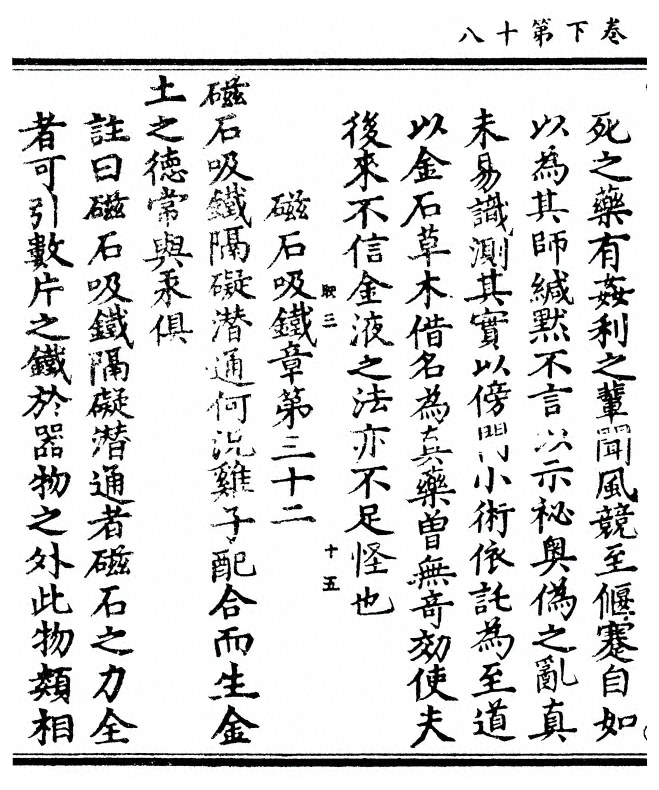 卷下第十八
死之藥有姦利之輩聞風競至偃蹇自如
以為其師緘默不言以示祕奥偽之亂真
未易識測其實以傍門小術依託為至道
以金石草木借名為真藥曽無竒効使夫
後來不信金液之法亦不足怪也
十五
磁石吸鐵章第三十二
磁石吸鐵隔礙潜通何況雞子配合而生金
土之德常與汞俱
註曰磁石吸鐵隔礙潜通者磁石之力全
者可引數片之鐵於器物之外此物類相